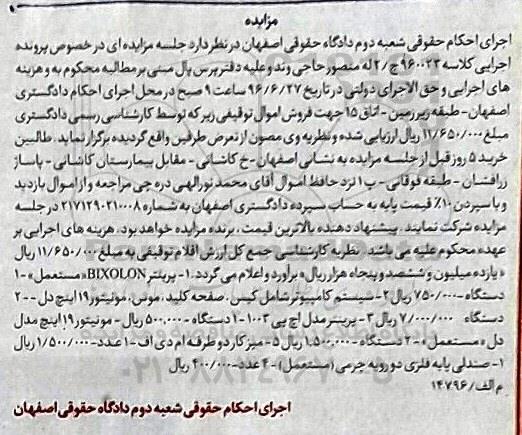 مزایده
اجرای احکام حقوقی شعبه دوم دادگاه حقوقی اصفهان در نظر دارد جلسه مزایده ای در خصوص پرونده
اجرایی کلاسه ۹۶۰۰۲۳ ج/۲ له منصور حاجی وند و علیه دفتر پرس پال مبنی بر مطالبه محکوم به و هزینه
های اجرایی و حق الاجرای دولتی در تاریخ ۹۶/۶/۲۷ ساعت ۹ صبح در محل اجرای احکام دادگستری
اصفهان - طبقه زیرزمین - اتاق ۱۵ جهت فروش اموال توقیفی زیر که توسط کارشناس رسمی دادگستری
مبلغ ۱۱/۶۵۰/۰۰۰ ریال ارزیابی شده و نظریه وی مصون از تعرض طرفین واقع گردیده برگزار نماید. طالبین
خرید ۵ روز قبل از جلسه مزایده به نشانی اصفهان - خ کاشانی - مقابل بیمارستان کاشانی - پاساژ
زرافشان - طبقه فوقانی - پ ۱ نزد حافظ اموال آقای محمد نورالهی دره چی مراجعه و از اموال بازدید
و با سپردن ۱۰٪ قیمت پایه به حساب سپرده دادگستری اصفهان به شماره ۲۱۷۱۲۹۰۲۱۰۰۸ در جلسه
مزایده شرکت نمایند. پیشنهاد دهنده بالاترین قیمت، برنده مزایده خواهد بود. هزینه های اجرایی بر
عهده محکوم علیه می باشد. نظریه کارشناسی جمع کل ارزش اقلام توقیفی به مبلغ ۱۱/۶۵۰/۰۰۰ ریال
«یازده میلیون و ششصد و پنجاه هزار ریال» برآورد و اعلام می گردد. ۱- پرینتر BIXOLON «مستعمل» ۱-
دستگاه ۷۵۰/۰۰۰ ریال ۲- سیستم کامپیوتر شامل کیس، صفحه کلید، موس، مونیتور ۱۹ اینچ دل - ۲۰
دستگاه ۷/۰۰۰/۰۰۰ ریال ۳- پرینتر مدل اچ پی ۱۰۰۳-۱ دستگاه ۵۰۰/۰۰۰ ریال - مونیتور ۱۹ اینچ مدل
دل «مستعمل» ۲- دستگاه ۱/۵۰۰/۰۰۰ ریال ۵- میز کار دو طرفه ام دی اف - ۱ عدد ۱/۵۰۰/۰۰۰ ریال
۱- صندلی پایه فلزی دو رویه چرمی (مستعمل) ۴- عدد ۴۰۰/۰۰۰ ریال
م الف/۱۴۷۹۶
اجرای احکام حقوقی شعبه دوم دادگاه حقوقی اصفهان